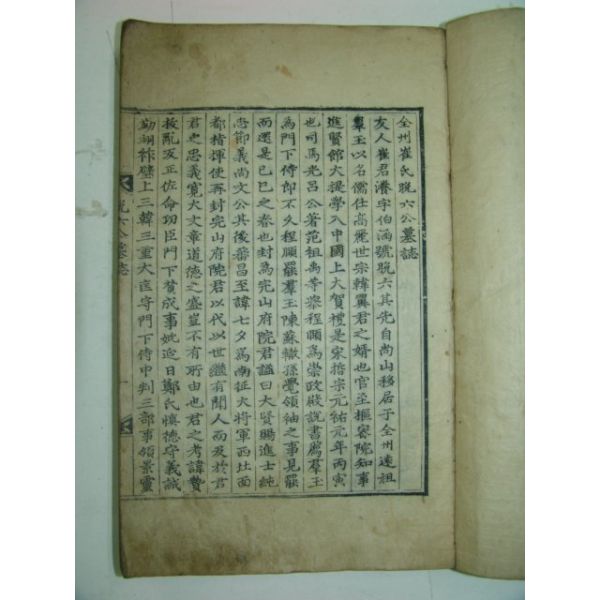 全州崔氏晩六公墓誌
友人崔君瀁字伯涵號晩六其先自尙山移居于全州遠祖
羣玉以名儒仕高麗世宗韓翼君之婿也官至樞密院知事
進賢館大提學入中國上大賀禮是宋哲宗元祐元年丙寅
也司馬光呂公著范祖禹等榮程頤爲崇政殿說書薦羣玉
爲門下侍郎不久程頤罷羣玉陳蘇轍孫覺領袖之事見罷
而還是己巳之春也封爲完山府院君謚曰大賢賜進士純
忠節義尙文公其後蕃昌至諱七夕爲南征大將軍西北面
都指揮使再封完山府院君以代以世繼有聞人而及於君
君之忠義寬大文章道德之盛豈不有所由也君之考諱贄
扶亂反正佐命功臣門下贊成事妣迎日鄭氏愼德守義誠
勤翊祚壁上三韓三重大匡守門下侍中判三部事領景靈
晩六公墓誌